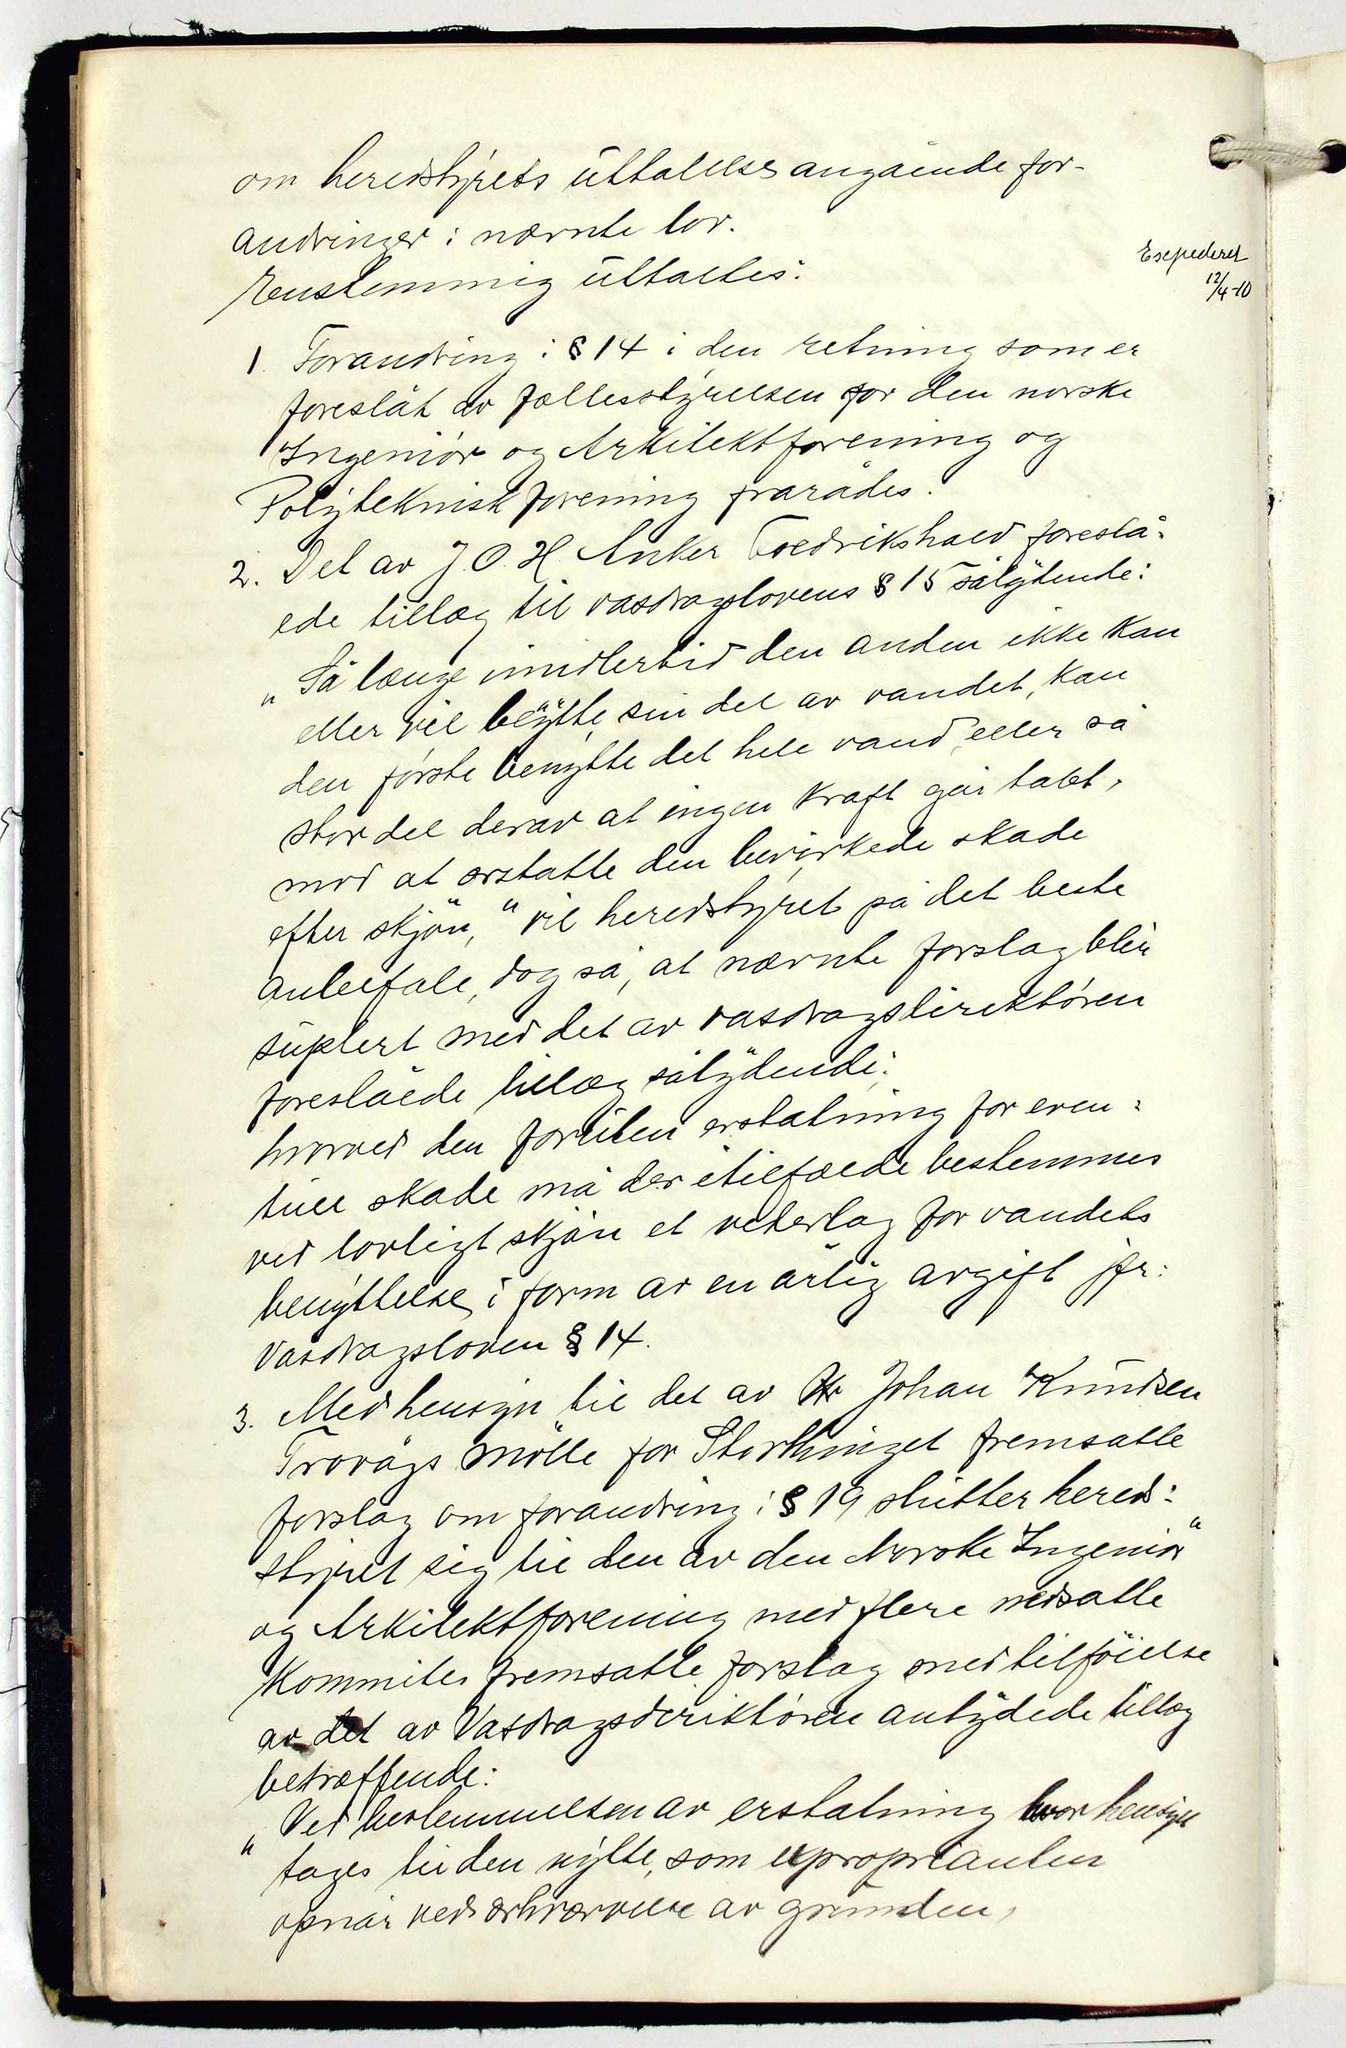 om heredstyrets uttalelse angående for-
andringer i nævnte lov.
Enstemmig uttaltes:
Expederet
12/4-10
1. Forandring i § 14 i den retning som er
foreslåt av fællesstyrelsen for den norske
Ingeniör og Arkitektforening og
Polyteknisk forening frarådes.
2. Det av J. O. H. Anker Fredrikshald foreslå-
ede tillæg til vasdragslovens § 15 sålydende:
"Så længe imidlertid den anden ikke kan
eller vil beytte sin del av vandet, kan
den første benytte det hele vand eller så
stor del derav at ingen kraft går tabt,
mod at erstatte den bevirkede skade
efter skjön," vil heredstyret på det beste
anbefale, dog så, at nævnte forslag blir
suplert med det av vasdragsdirektören
foreslåede tillæg sålydende:
hvorved den foruten erstatning for even-
tuel skade må der i tilfælde bestemmes
ved lovligt skjön et vederlag for vandets
benyttelse i form av en årlig avgift jfr:
Vasdragsloven § 14.
3. Med hensyn til det av Hr Johan Knudsen
Trovågs Mölle for Storthinget fremsatte
forslag om forandring i § 19 slutter hered-
styret sig til den av den Norske Ingeniör"
og Arkitektforening med flere nedsatte
Kommites fremsatte forslag med tilföielse
av det av Vasdragsderiktören antydede tillæg
betræffende:
"Ved bestemmelsen av erstatning bør hensyn
tages til den nytte, som expropriantен
opnår ved erhvervelse av grunden,